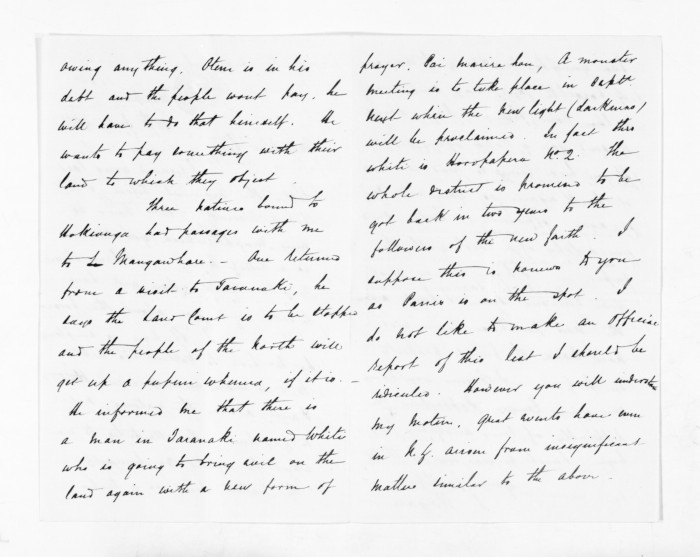 owing anything. Otene is in his
debt and the people wont pay. he
will have to do that himself. He
wants to pay something with their
land to which they object.
Three natives bound to
Hokianga had passages with me
to Mangawhare. — One returned
from a visit to Taranaki, he
says the Land Court is to be stopped
and the people of the North will
get up a pupuri whenua, if it is. —
He informed me that there is
a man in Taranaki named White
who is going to bring evil on the
land again with a new form of
prayer. Pai marire hou, A monster
meeting is to take place in Septr.
next when the new light (darkness)
will be proclaimed. In fact this
white is Horopapera No. 2. The
whole district is promised to be
got back in two years to the
followers of the new faith. I
suppose this is no news to you
as Parris is on the spot. I
do not like to make an official
report of this lest I should be
ridiculed. However you will understand
my motive. Great events have even
in N.Z. arisen from insignificant
matters similar to the above.